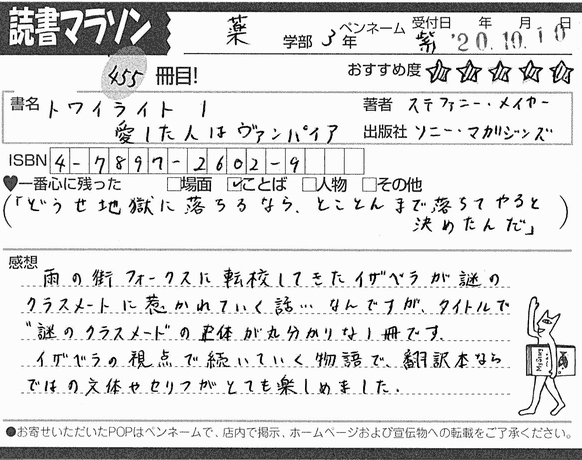 読書マラソン
薬 学部 3年 ペンネーム 紫 受付日 '20.10.10 年 月 日
455 冊目! おすすめ度 ☆☆☆☆☆
書名 トワイライト 1 著者 ステファニー・メイヤー
愛した人はヴァンパイア 出版社 ソニー・マガジンズ
ISBN 4-7897-2602-9
♥一番心に残った □場面 ☑ことば □人物 □その他
(「どうせ地獄に落ちるなら、とことんまで落ちてやると
決めたんだ」)
感想
雨の街フォークスに転校してきたイザベラが謎の
クラスメートに惹かれていく話…なんですが、タイトルで
"謎のクラスメート"の正体が丸分かりな1冊です。
イザベラの視点で続いていく物語で、翻訳本なら
ではの文体やセリフがとても楽しめました。
●お寄せいただいたPOPはペンネームで、店内で掲示、ホームページおよび宣伝物への転載をご了承ください。